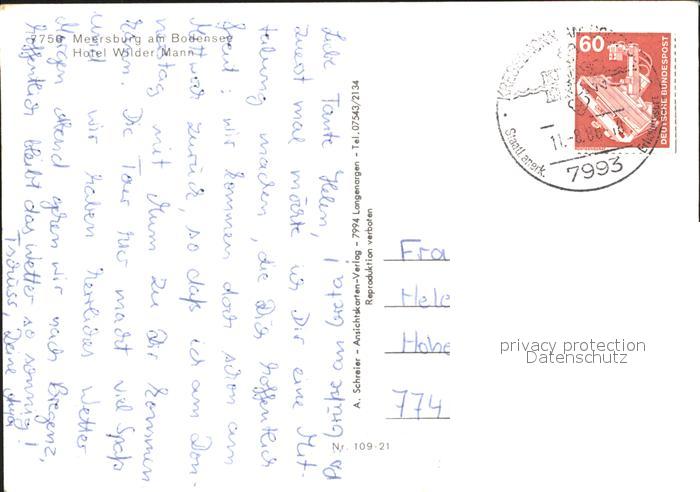 7758 Meersburg am Bodensee
Hotel Wilder Mann
Liebe Tante Helen,
zuerst mal möchte ich Dir eine Mit-
teilung machen, die Dich hoffentlich
freut: wir kommen doch schon am
Mittwoch zurück, so daß ich am Don-
nerstag mit Mum zu Dir kommen
kann. Die Tour hier macht viel Spaß
und wir haben herrliches Wetter.
Morgen abend gehen wir nach Bregenz,
hoffentlich bleibt das Wetter so sonnig!
Tschüss, Deine
Grüße an Greta!
A. Schreier - Ansichtskarten-Verlag - 7994 Langenargen - Tel. 07543/2134
Reproduktion verboten
Nr. 109-21
60
DEUTSCHE BUNDESPOST
11.-8.86
Staatl. anerk.
7993
Fra
Hele
Hohe
774
privacy protection
Datenschutz